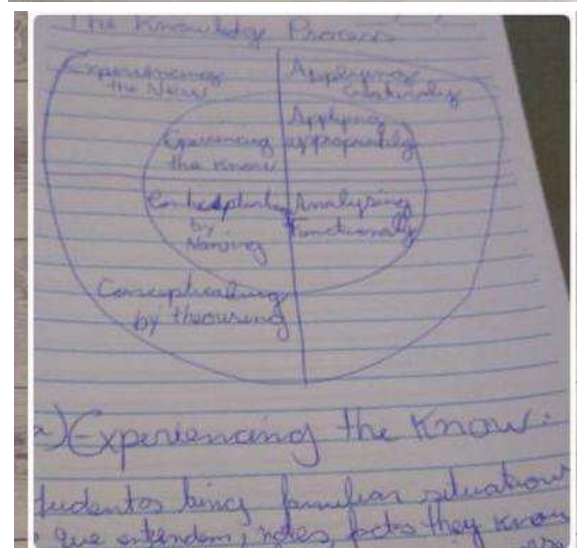 The Knowledge Process
Experiencing
the New
Applying
Creatively
Experiencing
the Know
Applying
appropriately
by
Naming
Analysing
Functionally
Conceptualizing
by theorising
a) Experiencing the Know:
students bring familiar situations
que entendem, notes, facts they know